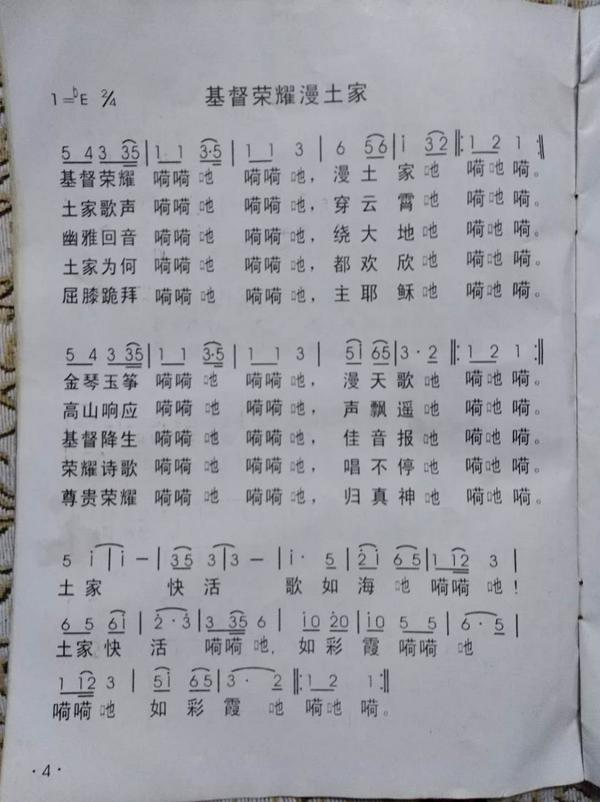 基督荣耀漫土家
1=ᵇE 2/4
5 43 35 | 1 1 3·5 | 1 1 3 | 6 56 | i 32 ‖: 1 2 1 :‖
基督荣耀 嗬嗬吔 嗬嗬吔，漫土家吔 嗬吔嗬。
土家歌声 嗬嗬吔 嗬嗬吔，穿云霄吔 嗬吔嗬。
幽雅回音 嗬嗬吔 嗬嗬吔，绕大地吔 嗬吔嗬。
土家为何 嗬嗬吔 嗬嗬吔，都欢欣吔 嗬吔嗬。
屈膝跪拜 嗬嗬吔 嗬嗬吔，主耶稣吔 嗬吔嗬。
5 4 3 35 | 1 1 3·5 | 1 1 3 | 5i 65 | 3·2 ‖: 1 2 1 :‖
金琴玉筝 嗬嗬吔 嗬嗬吔，漫天歌吔 嗬吔嗬。
高山响应 嗬嗬吔 嗬嗬吔，声飘遥吔 嗬吔嗬。
基督降生 嗬嗬吔 嗬嗬吔，佳音报吔 嗬吔嗬。
荣耀诗歌 嗬嗬吔 嗬嗬吔，唱不停吔 嗬吔嗬。
尊贵荣耀 嗬嗬吔 嗬嗬吔，归真神吔 嗬吔嗬。
5 i | i — | 35 3 | 3 — | i· 5 | 2i 65 | 1 12 3 |
土家 快活 歌如海吔 嗬嗬吔！
6 5 6i | 2·3 | 3 35 6 | i0 20 | i0 5 5 | 6·5 |
土家快活 嗬嗬吔，如彩霞 嗬嗬吔
1 12 3 | 5i 65 | 3· 2 ‖: 1 2 1 :‖
嗬嗬吔 如彩霞吔 嗬吔嗬。
·4·